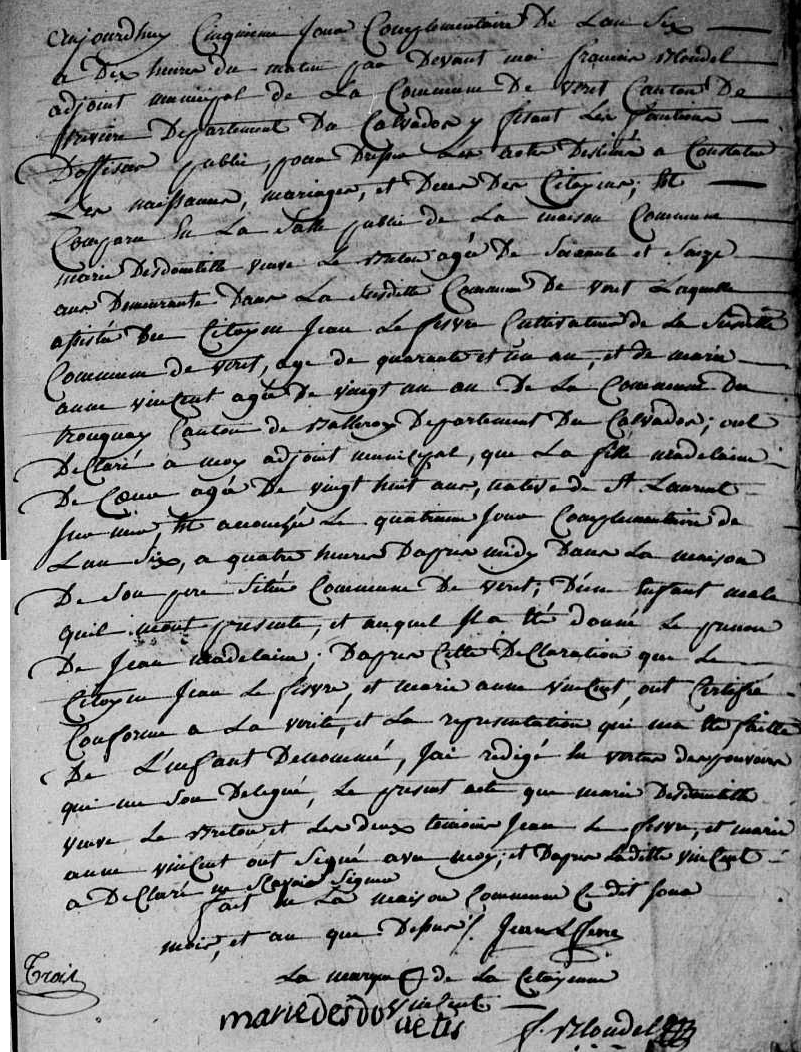 aujourdhuy Cinquieme Jour Complementaire De Lan Six
a Dix heures du matin par Devant moi françois Blondel
adjoint municipal de La Commune De veret Canton De
trevierre Departement Du Calvados y fesant Les fonctions
Dofficier public, pour Dresser Les actes Destinés a Constater
Les naissances, mariages, et Deces Des Citoyens; Est
Comparu En La Salle public de La maison Commune
marie Desdouetille veuve Le Breton agée De Soixante et Seize
ans Demeurante Dans La Susditte Commune De veret Laquelle
assistée Du Citoyen Jean Le fevre Cultivateur de La Susditte
Commune de veret, age de quarante et un an, et de marie
anne vincent agée De vingt un an De La Commune Du
tronquay Canton de Balleroy Departement Du Calvados; ont
DeClaré a moy adjoint municipal, que La fille madelaine
De agée De vingt huit ans, native de St Laurent
sur mer, Est accouchée Le quatrieme Jour Complementaire de
Lan Six, a quatre heures Dapres midy Dans La maison
De Son pere Située Commune De veret; D'un Enfant male
quil mont presenté, et auquel Il a Eté donné Le prenom
De Jean madelaine; Dapres Cette DeClaration que Le
Citoyen Jean Le fevre, et marie anne vincent, ont Certifié
Conforme a La verité, et La representation qui ma Eté faitte
De L'enfant Denommé, Jai redigé En vertu des pouvoirs
qui me Son Delegué, Le present acte que marie Desdouetille
veuve Le Breton et Les deux temoins Jean Le fevre, et marie
anne vincent ont Signé avec moy; et Dapres Laditte vincent
a DeClaré ne Scavoir Signer
fait En La maison Commune Ce dit Jour
mois, et an que Dessus /. Jean Lefevre
Trois
La marque de La Citoyenne
vincent
marie desdouetis
f. Blondel